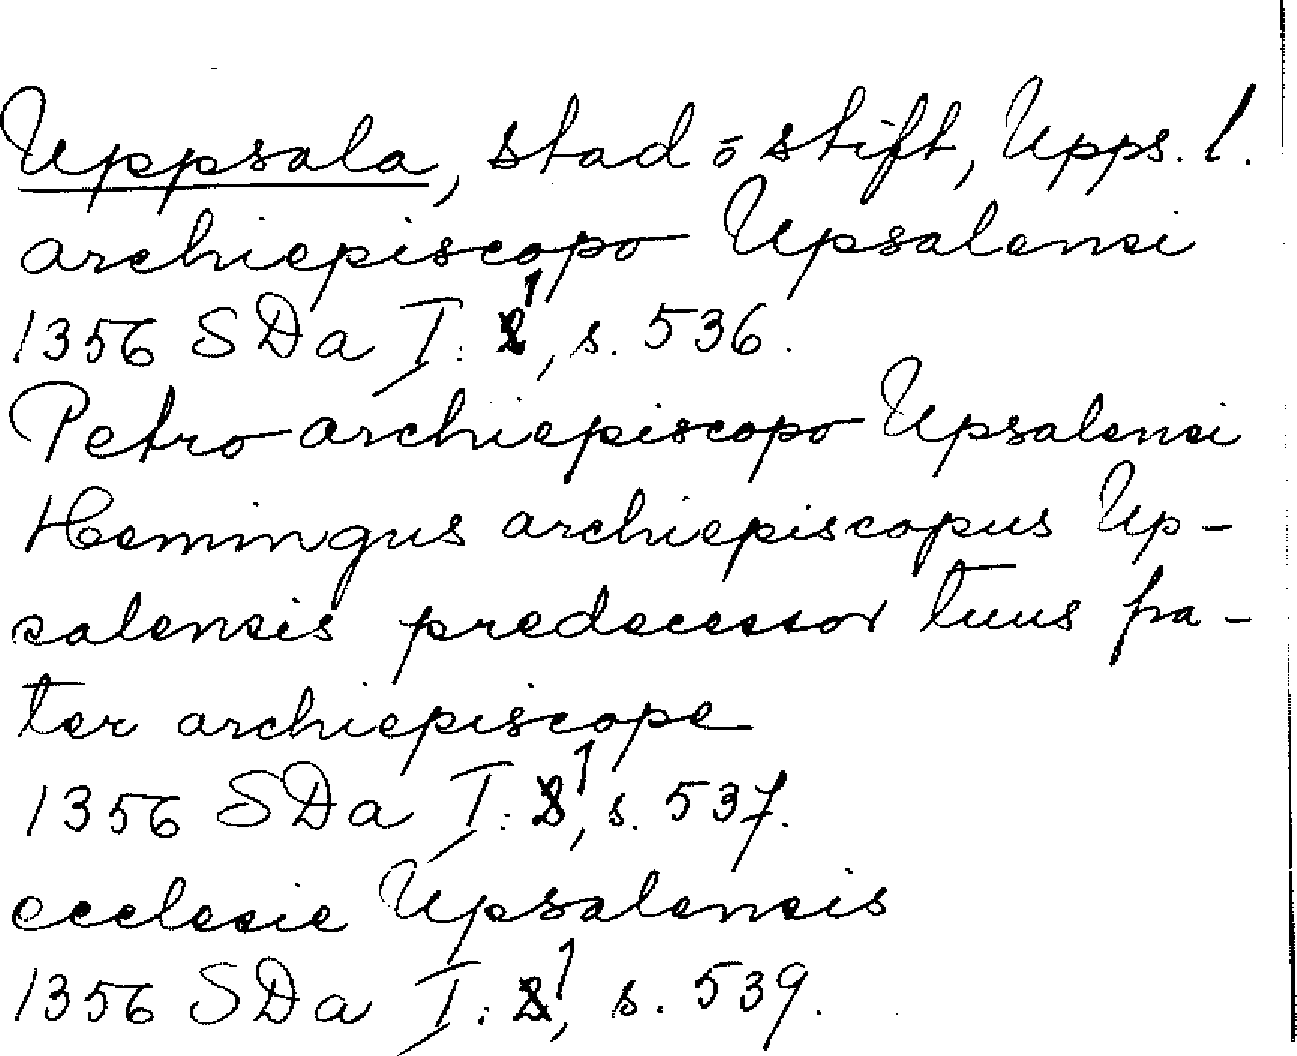 Uppsala, stad o stift, Upps. l.
archiepiscopo Upsalensi
1356 SDa I: 1, s. 536.
Petro archiepiscopo Upsalensi
Hemingus archiepiscopus Up-
salensis predecessor tuus pa-
ter archiepiscope
1356 SDa I: 1, s. 537.
ecclesie Upsalensis
1356 SDa I: 1, s. 539.